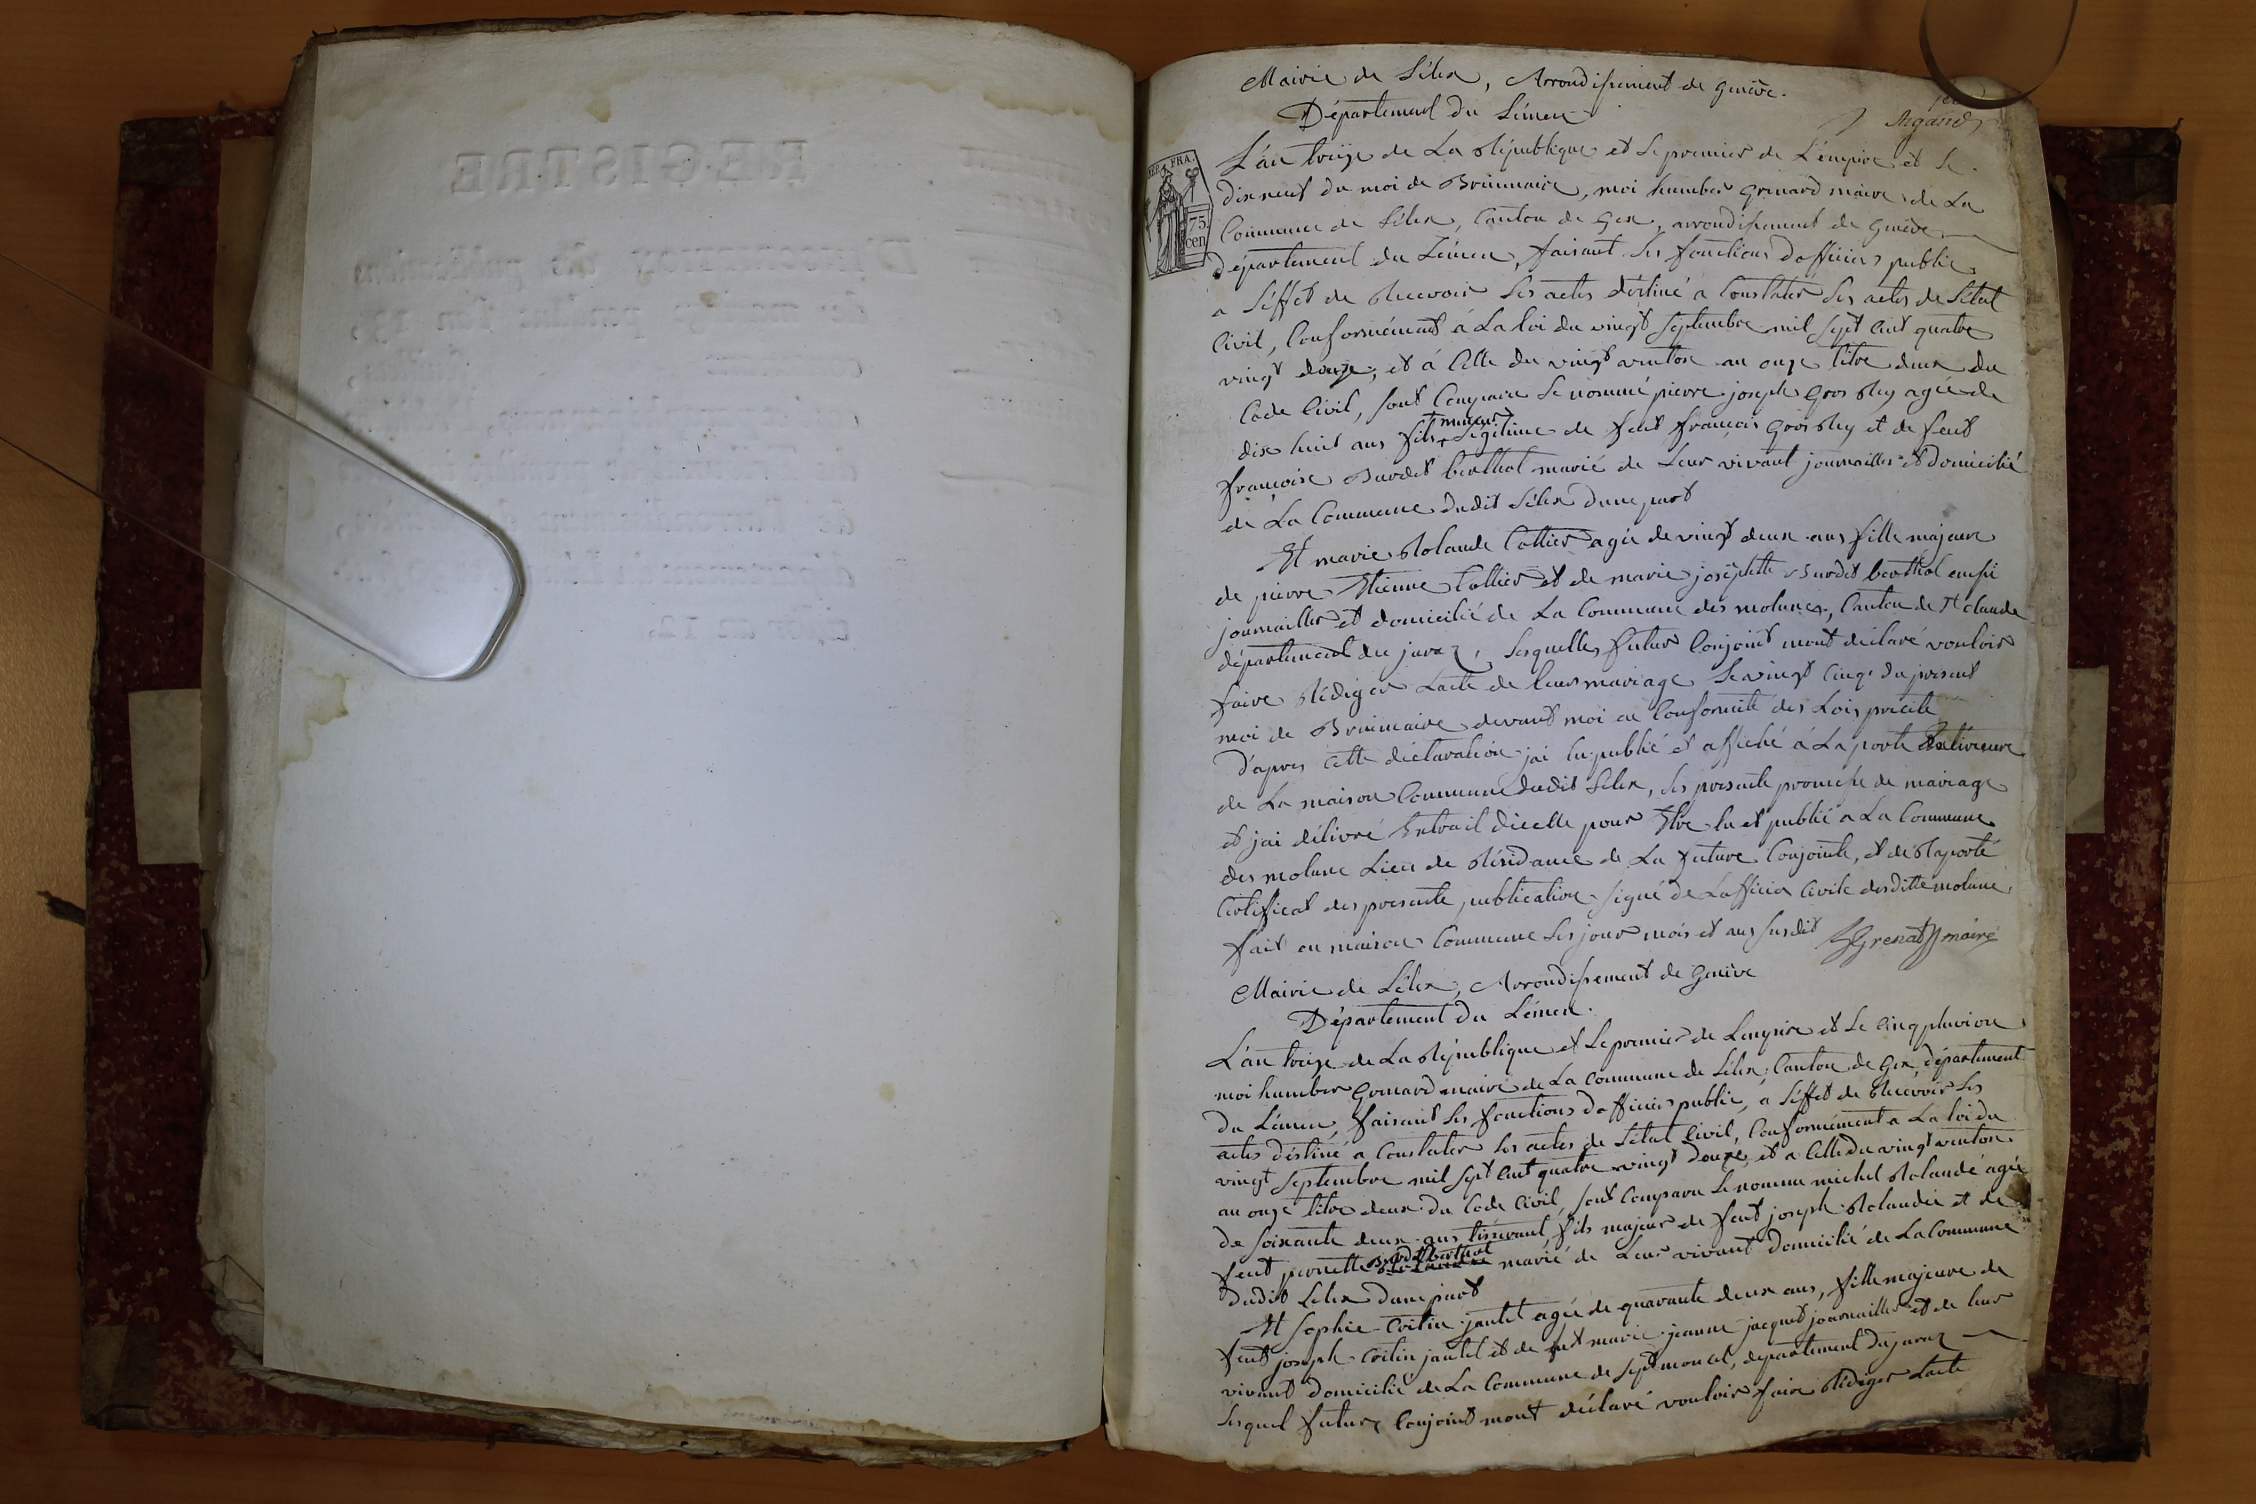 REGISTRE
Mairie de Lélex, Arrondissement de Genève.
Département du Léman
Argand
REP. FRA.
75
cen
L'an treize de La République et le premier de L'empire et le
dix neuf du moi de Brumaire, moi humber Grenard maire de La
Commune de Lélex, Canton de Gex, arrondissement de Genève
département du Léman, faisant les fonctions d'officier public
a l'éffet de Recevoir les actes déstiné a Constater les actes de L'état
Civil, Conformément á La loi du vingt Septembre mil Sept Cent quatre
vingt douze, et á Celle du vingt ventose an onze titre deux du
Code Civil, sont Comparu le nommé pierre joseph Gros Rey agée de
dix huit ans fils mineur Légitime de feut françois Gros Rey et de feut
françoise Burdet berthet marié de Leur vivant journailler et domicilié
de La Commune dudit Lélex d'une part
Et marie Rolande Cottier agée de vingt deux ans fille majeure
de pierre Etienne Cottier et de marie joséphtte Burdet berthet
journailler et domicilié de La Commune des molunes, Canton de St claude
département du jura, lesquelles futur Conjoint mont déclaré vouloir
faire Rédiger Lacte de leur mariage le vingt Cinq du present
moi de Brumaire devant moi en Conformité des Lois precité
d'apres Cette déclaration jai lu publié et affiché á La porte Extérieure
de La maison Commune dudit Lélex, les presente promesse de mariage
et jai délivré Extrait dicelle pour Etre lu et publié a La Commune
des molune Lieu de Résidance de La future Conjointe, et de Raporté
Certificat des presente publication signé de Lofficier Civile desditte molune,
fait en maison Commune les jour mois et ans susdit Grenard maire
Mairie de Lélex, Arrondissement de Genève
Département du Léman.
L'an treize de La République et Le premier de Lempire et Le Cinq pluviose
moi humber Grenard maire de La Commune de Lélex, Canton de Gex, département
du Léman, faisant les fonctions d'officier public, a l'éffet de Recevoir les
actes déstiné a Constater les actes de L'état Civil, Conformément a La loi du
vingt Septembre mil Sept Cent quatre vingt douze, et a Celle du vingt ventose
an onze titre deux du Code Civil, sont Comparu le nommé michel Rolandé agée
de Soixante deux ans tisserant fils majeur de feut joseph Rolandée et de
feut pernette Burdet berthet marié de Leur vivant domicilié de La Commune
dudit Lélex d'une part
Et Sophie jantet agée de quarante deux ans, fille majeure de
feut joseph jantet et de feut marie jeanne jacquet journailler et de leur
vivant domicilié de La Commune de Septmoncel, département du jura
lesquel futur Conjoint mont déclaré vouloir faire Rédiger Lacte